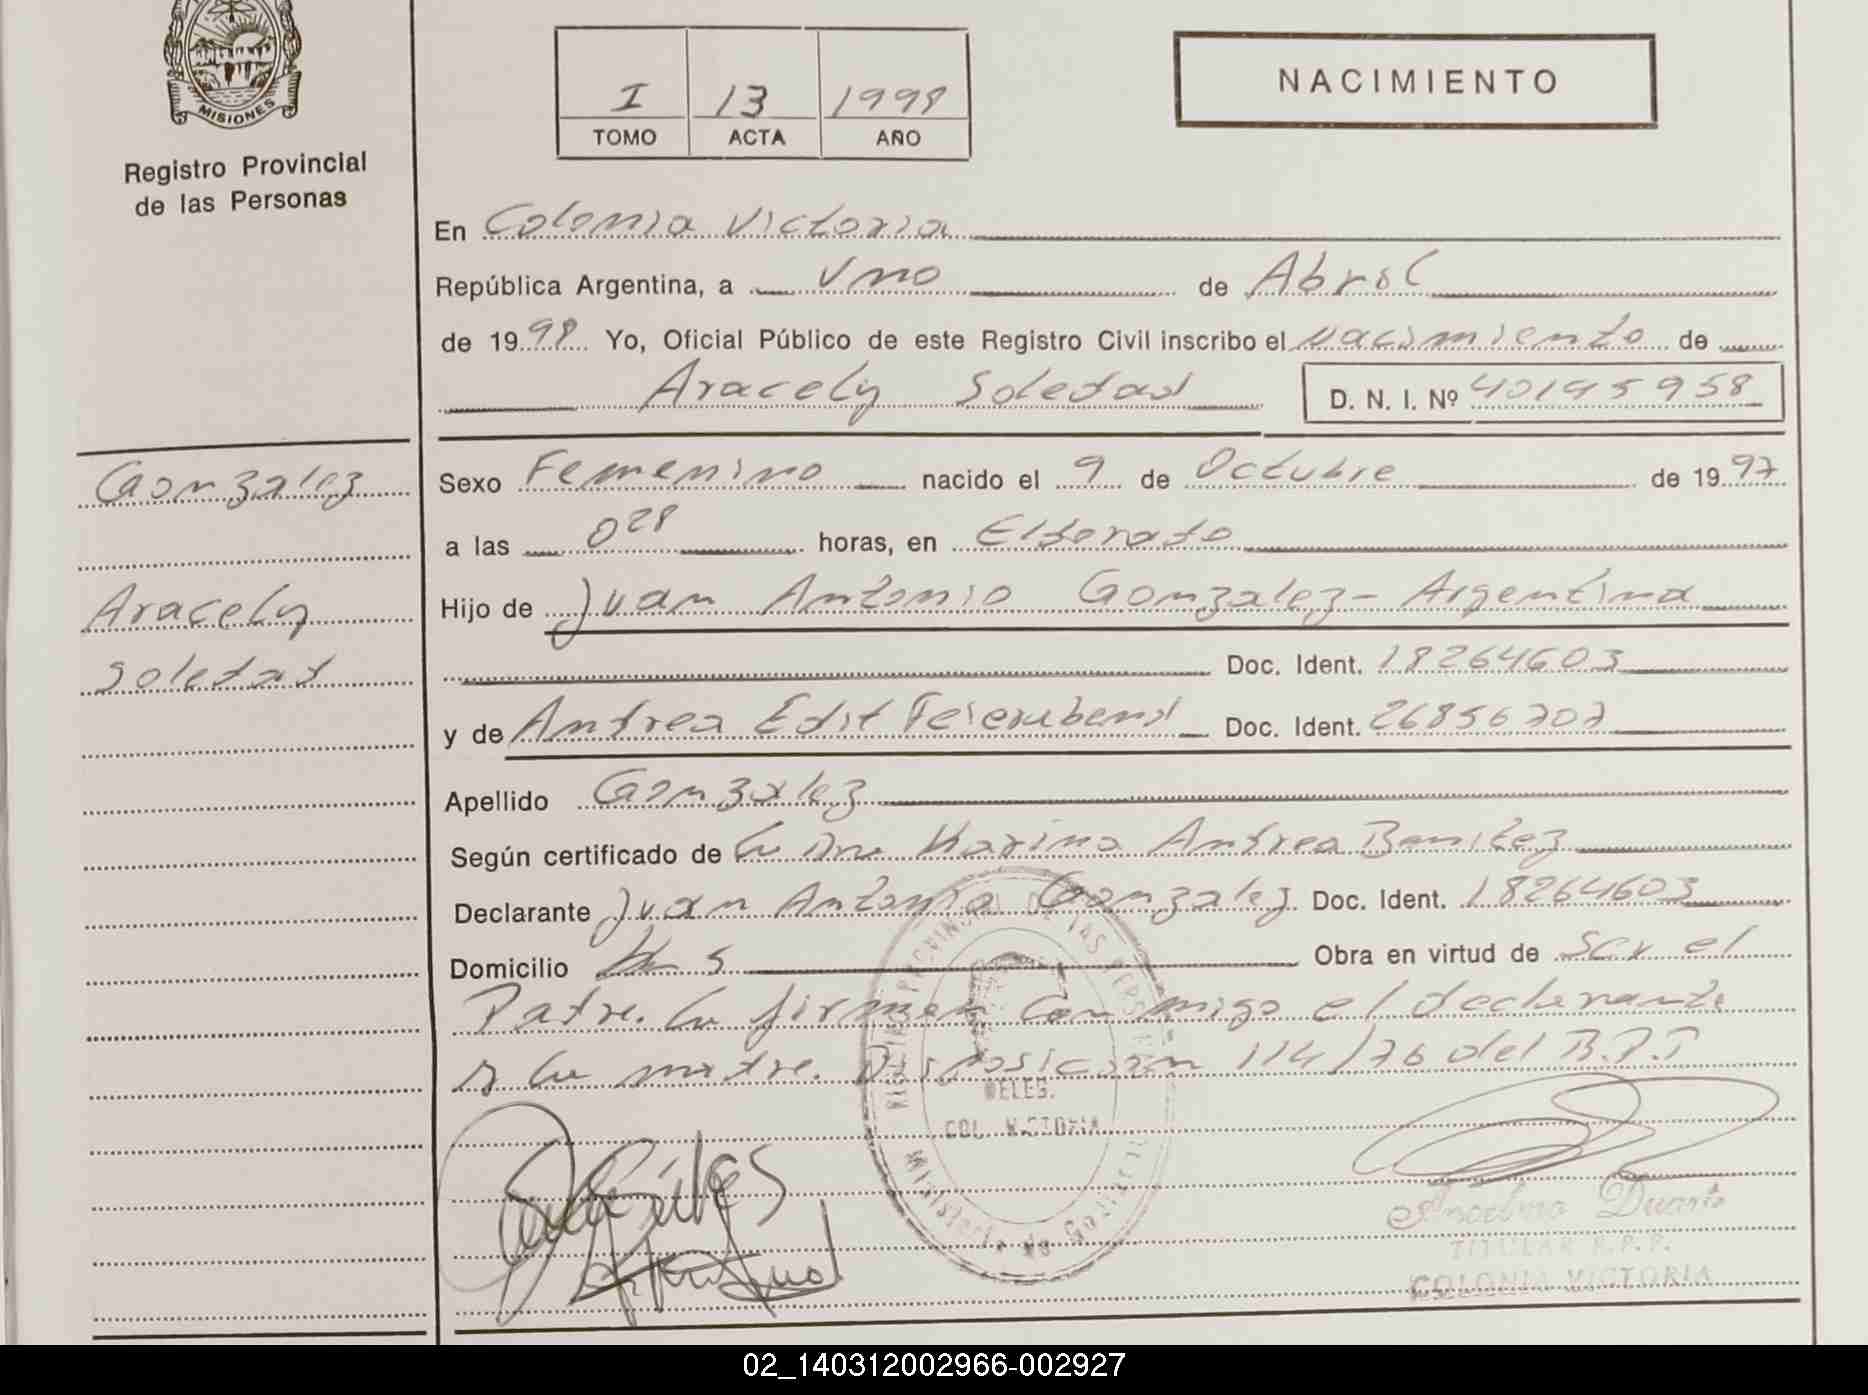 MISIONES
Registro Provincial
de las Personas
I 13 1998
TOMO ACTA AÑO
NACIMIENTO
En Colonia Victoria
República Argentina, a Uno de Abril
de 1998 Yo, Oficial Público de este Registro Civil inscribo el nacimiento de
Aracely Soledad D. N. I. Nº 40195958
Gonzalez
Aracely
Soledad
Sexo Femenino nacido el 9 de Octubre de 1997
a las 0 28 horas, en Eldorado
Hijo de Juan Antonio Gonzalez - Argentina
Doc. Ident. 18264603
y de Andrea Edit Feierabend Doc. Ident. 26856707
Apellido Gonzalez
Según certificado de la Dra Karina Andrea Benitez
Declarante Juan Antonio Gonzalez Doc. Ident. 18264603
Domicilio Obra en virtud de Ser el
Padre. La firman conmigo el declarante
y la madre. Disposicion 114/76 del
DELEG.
COL. VICTORIA
Ministerio de Gobierno
Anselmo Duarte
TITULAR R.P.P.
COLONIA VICTORIA
02_140312002966-002927